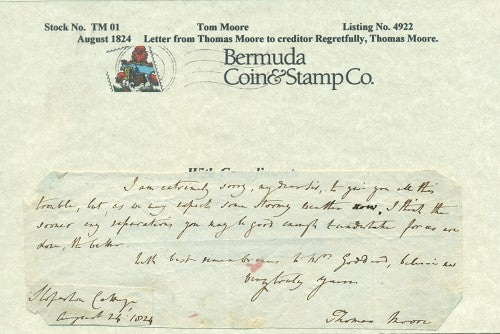 Stock No. TM 01 Tom Moore Listing No. 4922
August 1824 Letter from Thomas Moore to creditor Regretfully, Thomas Moore.
Bermuda
Coin & Stamp Co.
I am extremely sorry, my dear Sir, to give you all this
trouble, but as we may expect some stormy weather now, I think the
sooner any reparations you may be good enough to undertake for us are
done, the better.
With best remembrances to Mrs Goddard, believe me
very truly yours
Sloperton Cottage
August 24 1824 Thomas Moore